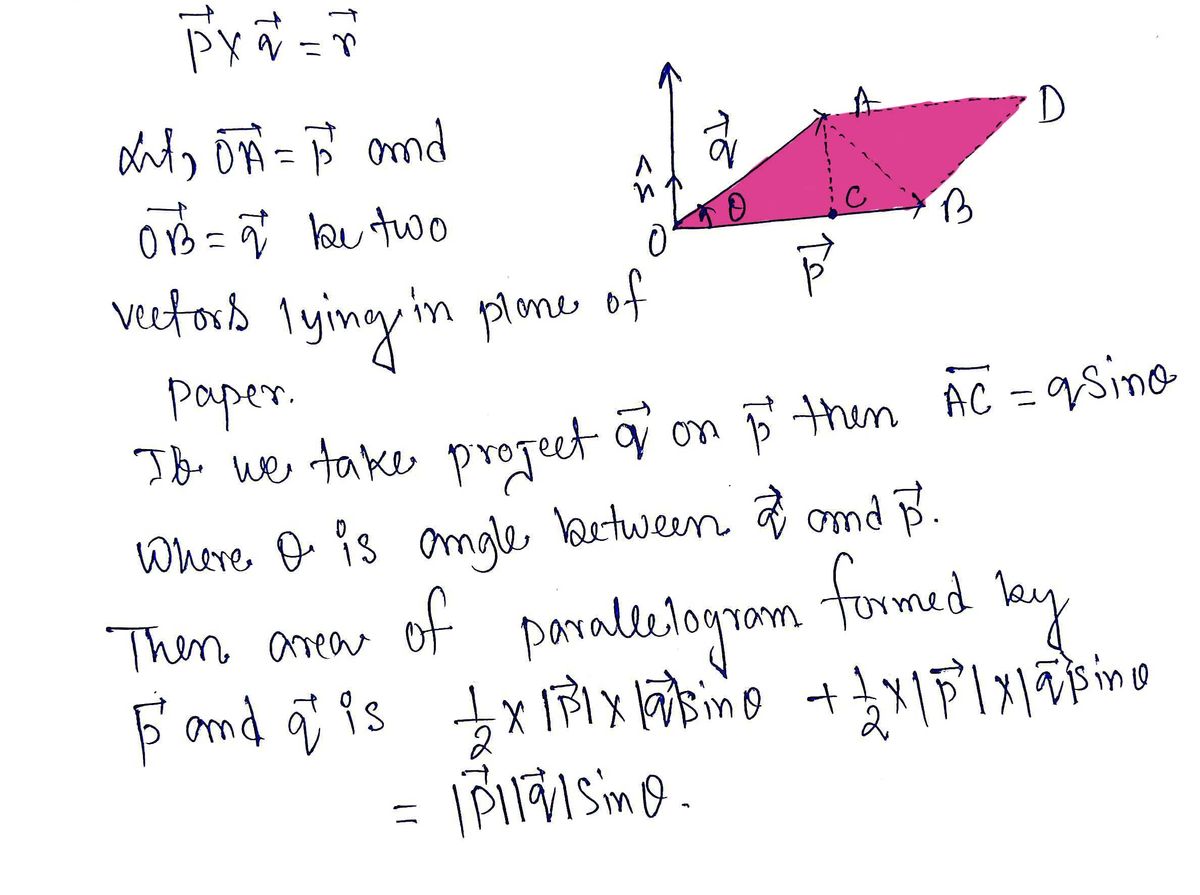 p⃗ × q⃗ = r⃗
Let, OA⃗ = p⃗ and
OB⃗ = q⃗ be two
vectors lying in plane of
paper.
If we take project q⃗ on p⃗ then A̅C̅ = q sinθ
Where θ is angle between q⃗ and p⃗.
Then area of parallelogram formed by
p⃗ and q⃗ is ½ × |p⃗| × |q⃗| sinθ + ½ × |p⃗| × |q⃗| sinθ
= |p⃗||q⃗| sinθ.
A
D
q⃗
n̂
θ
C
B
O
p⃗